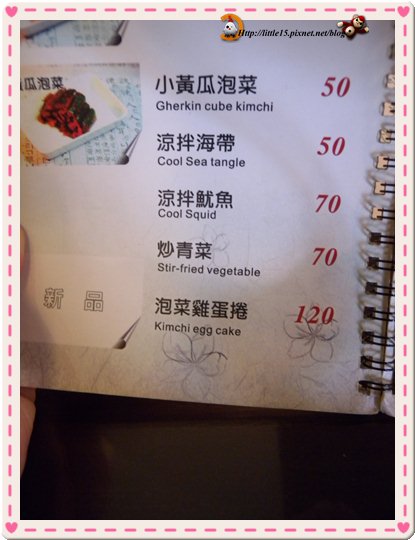 Http://little15.pixnet.net/blog
黃瓜泡菜
小黃瓜泡菜 50
Gherkin cube kimchi
涼拌海帶 50
Cool Sea tangle
涼拌魷魚 70
Cool Squid
炒青菜 70
Stir-fried vegetable
新品
泡菜雞蛋捲 120
Kimchi egg cake